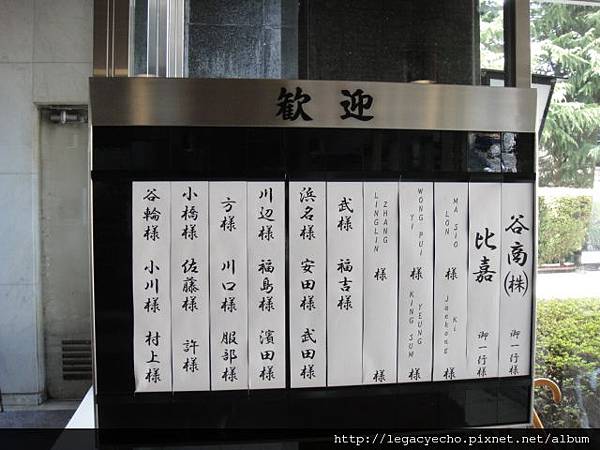 歓迎
谷商㈱ 御一行様
比嘉 御一行様
MA SIO LON 様 Ki Jaehong 様
WONG PUI YI 様 YEUNG KING SUM 様
ZHANG LINGLIN 様 様
武様 福吉様
浜名様 安田様 武田様
川辺様 福島様 濱田様
方様 川口様 服部様
小橋様 佐藤様 許様
谷輪様 小川様 村上様
http://legacyecho.pixnet.net/album